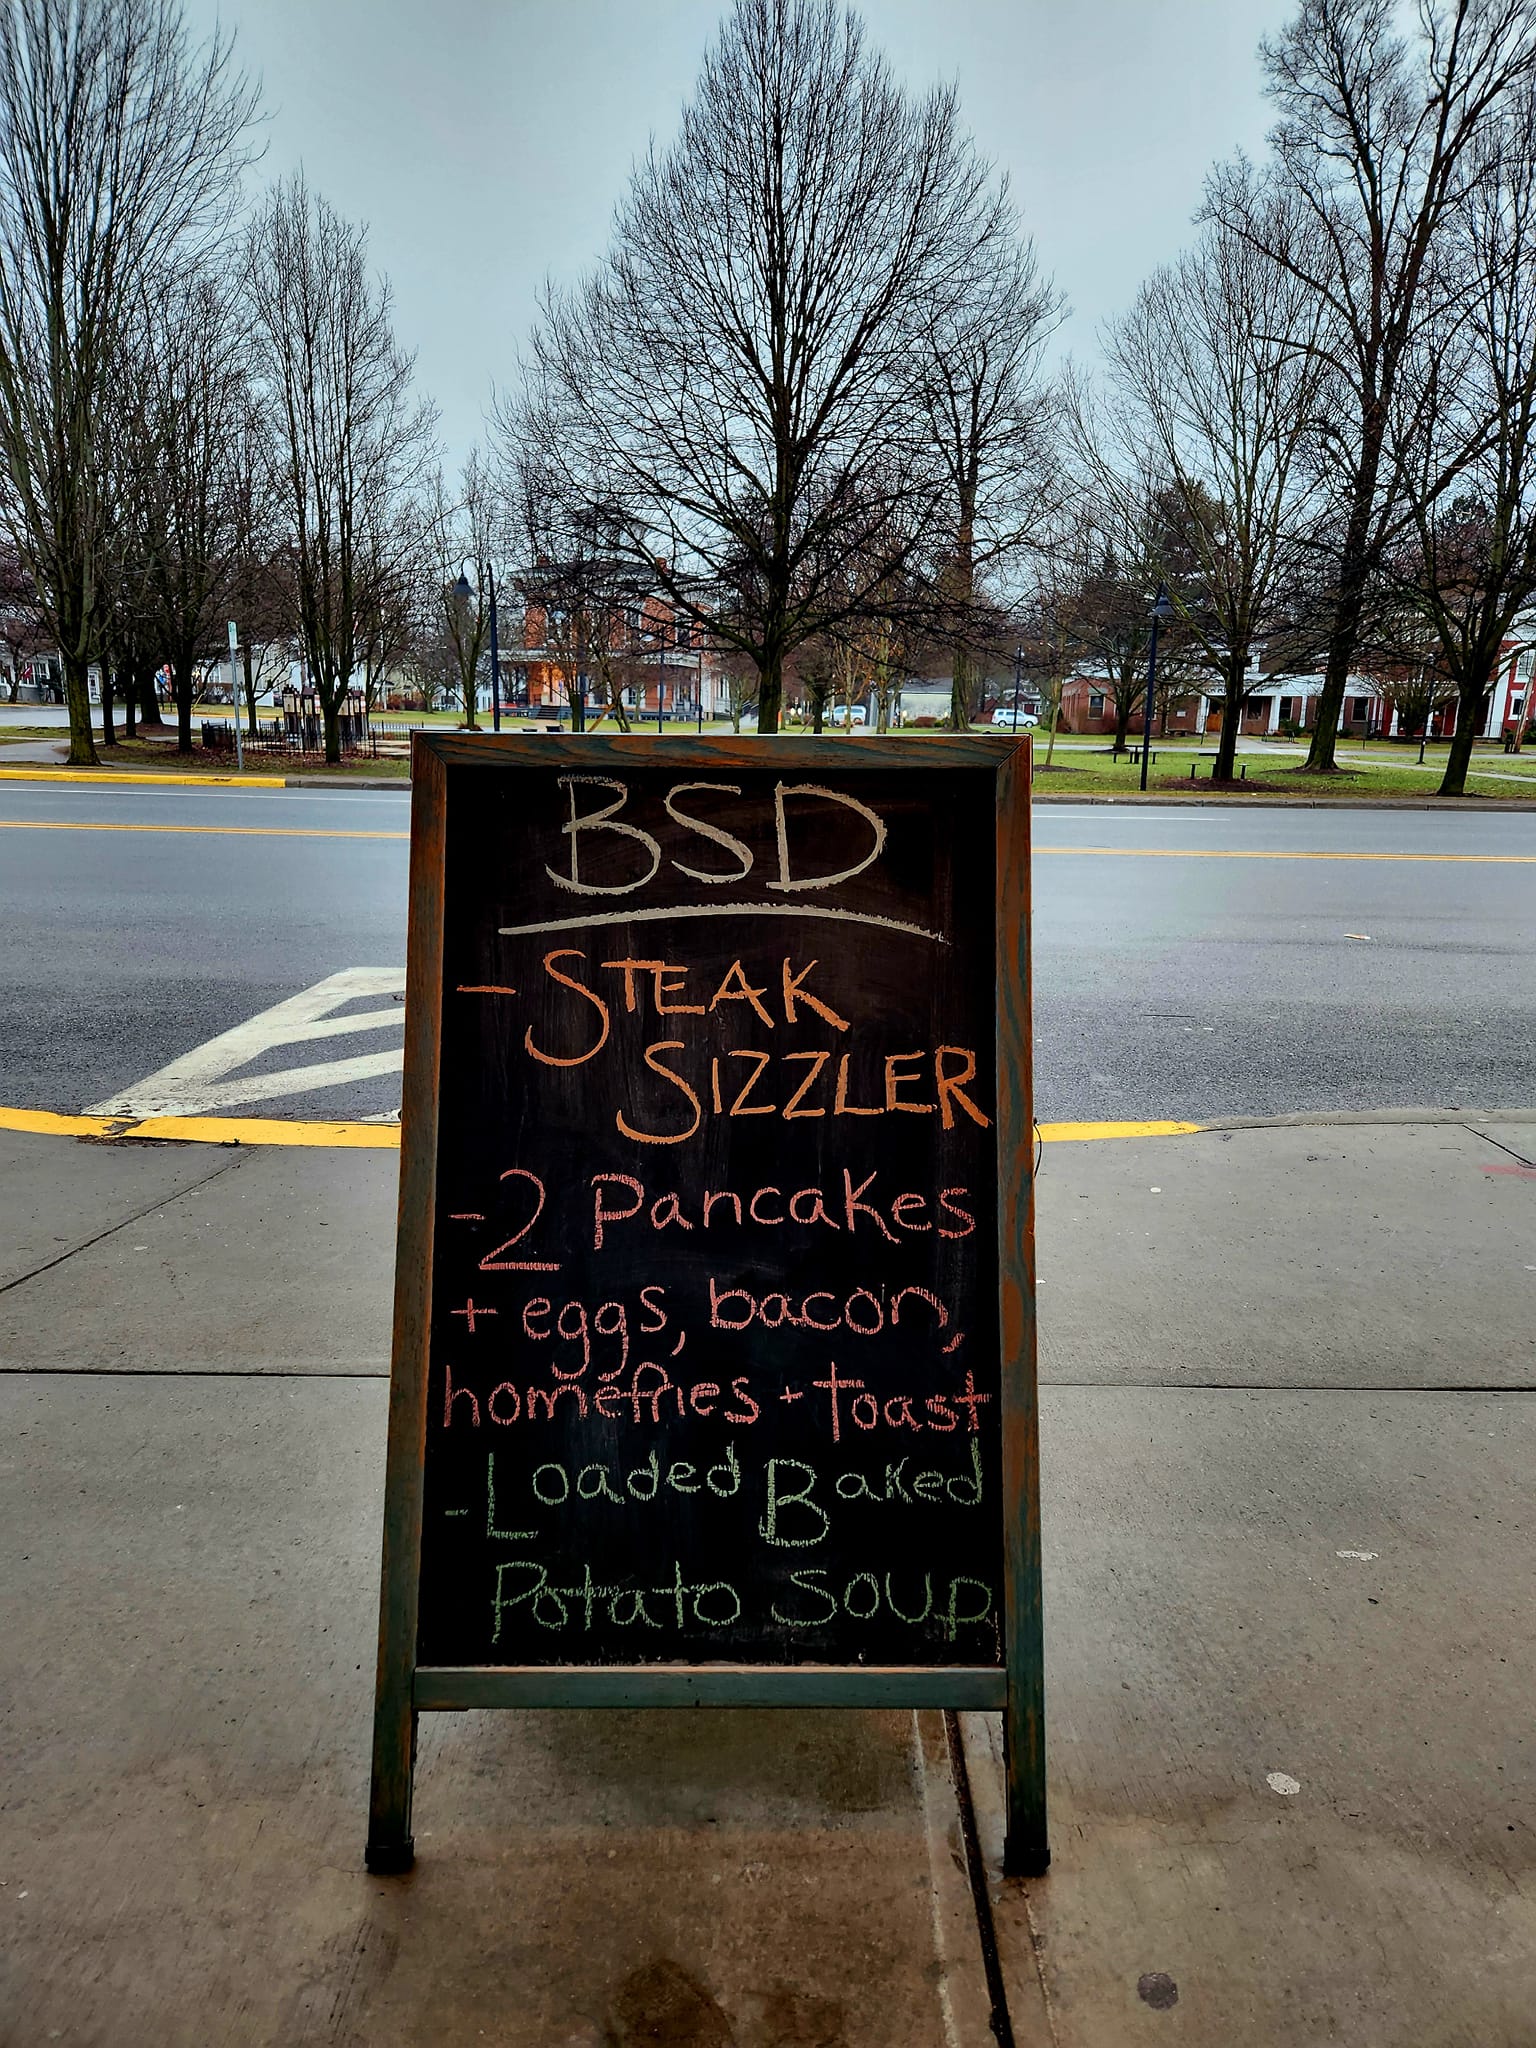 BSD
- STEAK
SIZZLER
- 2 Pancakes
+ eggs, bacon,
homefries + toast
- Loaded Baked
Potato Soup